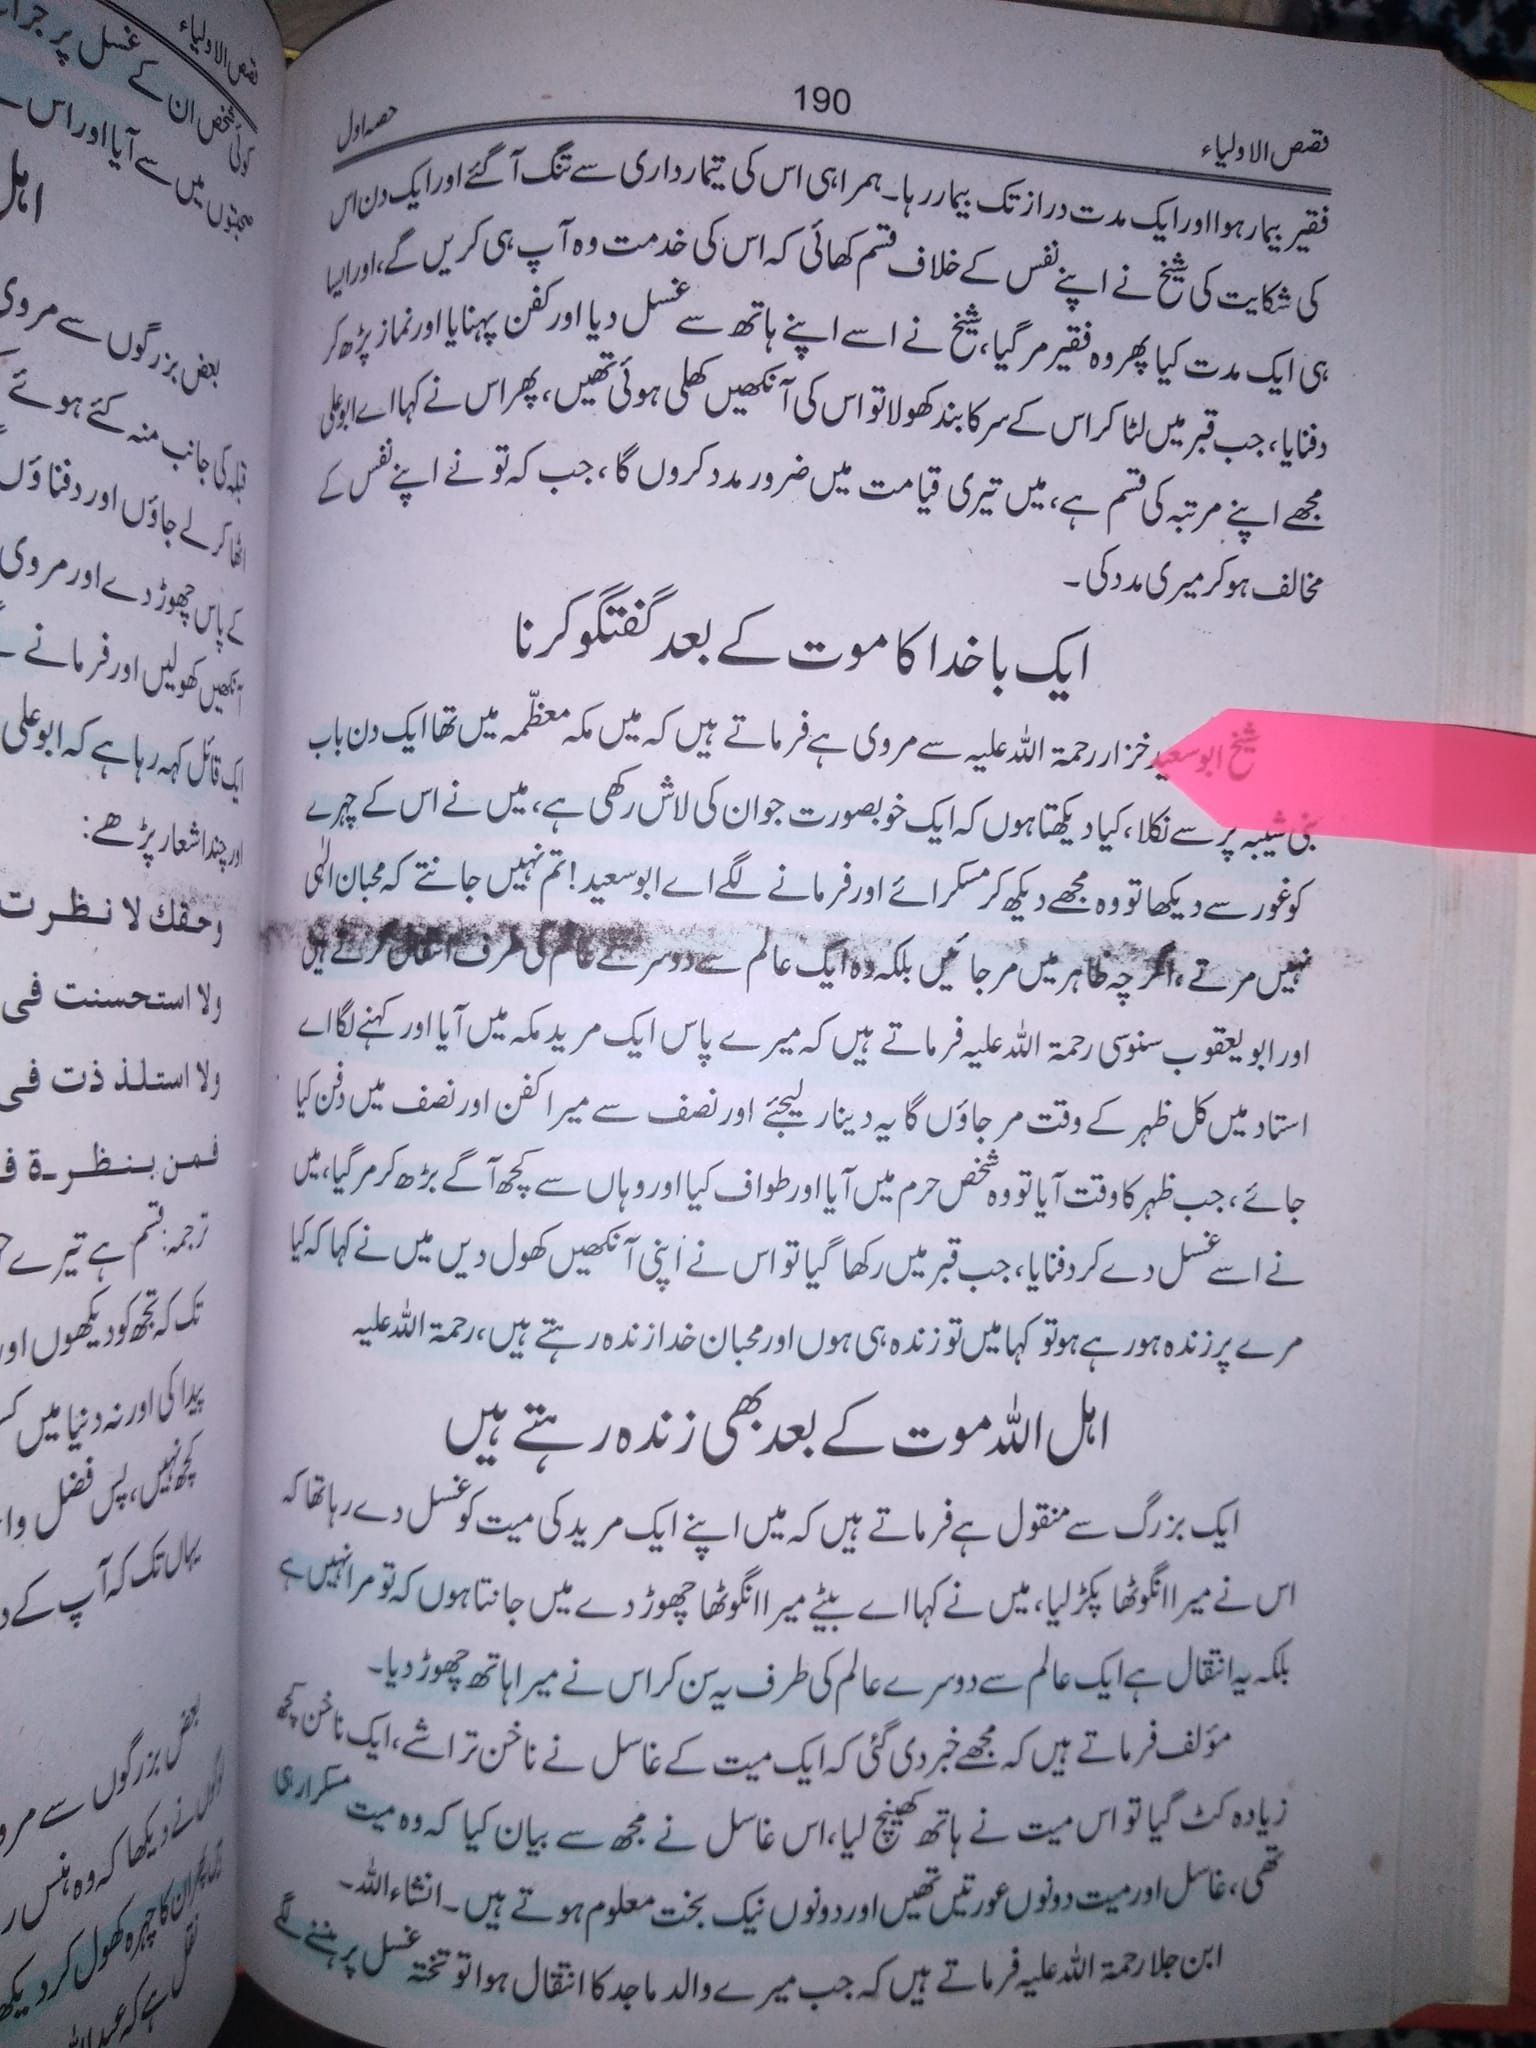 قصص الاولیاء
190
حصہ اول
فقیر بیمار ہوا اور ایک مدت دراز تک بیمار رہا۔ ہمراہی اس کی تیمارداری سے تنگ آ گئے اور ایک دن اس
کی شکایت کی شیخ نے اپنے نفس کے خلاف قسم کھائی کہ اس کی خدمت وہ آپ ہی کریں گے، اور ایسا
ہی ایک مدت کیا پھر وہ فقیر مر گیا، شیخ نے اسے اپنے ہاتھ سے غسل دیا اور کفن پہنایا اور نماز پڑھ کر
دفنایا، جب قبر میں لٹا کر اس کے سر کا بند کھولا تو اس کی آنکھیں کھلی ہوئی تھیں، پھر اس نے کہا اے ابوعلی
مجھے اپنے مرتبہ کی قسم ہے، میں تیری قیامت میں ضرور مدد کروں گا، جب کہ تو نے اپنے نفس کے
مخالف ہو کر میری مدد کی۔
ایک باخدا کا موت کے بعد گفتگو کرنا
شیخ ابوسعید خزار رحمۃ اللہ علیہ سے مروی ہے فرماتے ہیں کہ میں مکہ معظّمہ میں تھا ایک دن باب
بنی شیبہ پر سے نکلا، کیا دیکھتا ہوں کہ ایک خوبصورت جوان کی لاش رکھی ہے، میں نے اس کے چہرے
کو غور سے دیکھا تو وہ مجھے دیکھ کر مسکرائے اور فرمانے لگے اے ابوسعید! تم نہیں جانتے کہ محبان الٰہی
نہیں مرتے، اگر چہ ظاہر میں مر جائیں بلکہ وہ ایک عالم سے دوسرے عالم کی طرف انتقال کرتے ہیں
اور ابو یعقوب سنوسی رحمۃ اللہ علیہ فرماتے ہیں کہ میرے پاس ایک مرید مکہ میں آیا اور کہنے لگا اے
استاد میں کل ظہر کے وقت مر جاؤں گا یہ دینار لیجئے اور نصف سے میرا کفن اور نصف میں دفن کیا
جائے، جب ظہر کا وقت آیا تو وہ شخص حرم میں آیا اور طواف کیا اور وہاں سے کچھ آگے بڑھ کر مر گیا، میں
نے اسے غسل دے کر دفنایا، جب قبر میں رکھا گیا تو اس نے اپنی آنکھیں کھول دیں میں نے کہا کہ کیا
مرے پر زندہ ہو رہے ہو تو کہا میں تو زندہ ہی ہوں اور محبان خدا زندہ رہتے ہیں، رحمۃ اللہ علیہ
اہل اللہ موت کے بعد بھی زندہ رہتے ہیں
ایک بزرگ سے منقول ہے فرماتے ہیں کہ میں اپنے ایک مرید کی میت کو غسل دے رہا تھا کہ
اس نے میرا انگوٹھا پکڑ لیا، میں نے کہا اے بیٹے میرا انگوٹھا چھوڑ دے میں جانتا ہوں کہ تو مرا نہیں ہے
بلکہ یہ انتقال ہے ایک عالم سے دوسرے عالم کی طرف یہ سن کر اس نے میرا ہاتھ چھوڑ دیا۔
مؤلف فرماتے ہیں کہ مجھے خبر دی گئی کہ ایک میت کے غاسل نے ناخن تراشے، ایک ناخن کچھ
زیادہ کٹ گیا تو اس میت نے ہاتھ کھینچ لیا، اس غاسل نے مجھ سے بیان کیا کہ وہ میت مسکرا رہی
تھی، غاسل اور میت دونوں عورتیں تھیں اور دونوں نیک بخت معلوم ہوتے ہیں۔ انشاء اللہ۔
ابن جلا رحمۃ اللہ علیہ فرماتے ہیں کہ جب میرے والد ماجد کا انتقال ہوا تو تختہ غسل پر ہنسنے لگے
قصص الاولیاء
کوئی شخص ان کے غسل پر
میں سے آیا اور اس
بعض بزرگوں سے مروی
قبلہ کی جانب منہ کئے ہوئے
اٹھا کر لے جاؤں اور دفناؤں
کے پاس چھوڑ دے اور مروی
آنکھیں کھولیں اور فرمانے
ایک قائل کہہ رہا ہے کہ ابوعلی
اور چند اشعار پڑھے:
وحقك لا نظرت
ولا استحسنت فی
ولا استلذذت فی
فمن بنظرة
ترجمہ: قسم ہے تیرے
تک کہ تجھ کو دیکھوں اور
پیدا کی اور نہ دنیا میں
کچھ نہیں، پس فضل
یہاں تک کہ آپ کے
بعض بزرگوں سے
لوگوں نے دیکھا کہ وہ ہنس
ان کا چہرہ کھول کر
نقل ہے کہ